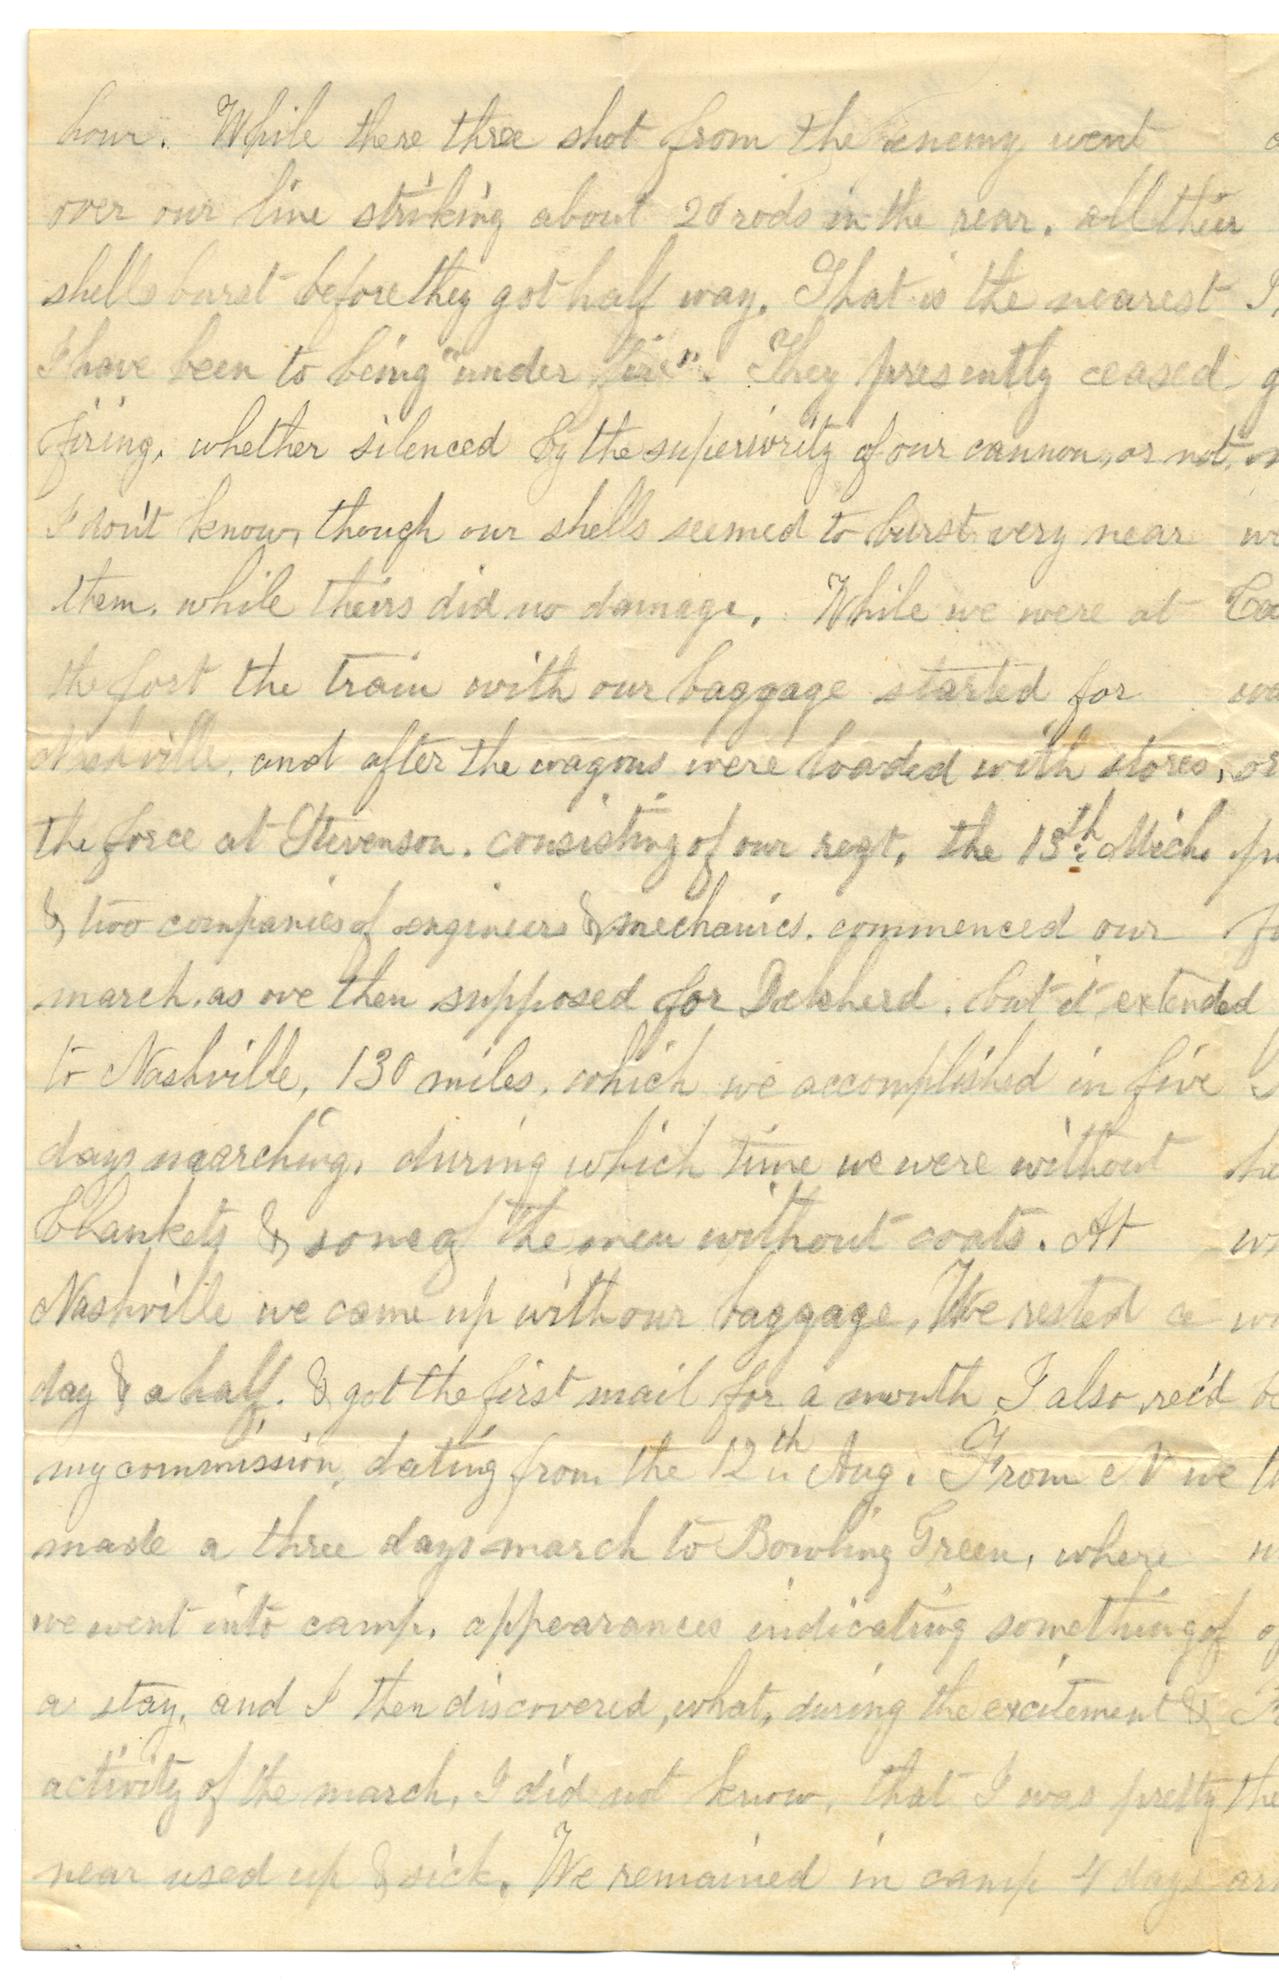 hour. While there three shot from the enemy went
over our line striking about 20 rods in the rear. all their
shells burst before they got half way. That is the nearest
I have been to being "under fire". They presently ceased
firing, whether silenced by the superiority of our cannon, or not,
I don't know, though our shells seemed to burst very near
them, while theirs did no damage. While we were at
the fort the train with our baggage started for
Nashville, and after the wagons were loaded with stores,
the force at Stevenson. consisting of our regt, the 13th Mich.
& two companies of engineers & mechanics. commenced our
march, as we then supposed for Decherd, but it extended
to Nashville, 130 miles, which we accomplished in five
days marching, during which time we were without
blankets & some of the men without coats. At
Nashville we came up with our baggage, We rested a
day & a half. & got the first mail for a month I also rec'd
my commission, dating from the 12th Aug. From N we
made a three days march to Bowling Green, where
we went into camp, appearances indicating something of
a stay, and I then discovered, what, during the excitement &
activity of the march, I did not know, that I was pretty
near used up & sick. We remained in camp 4 days